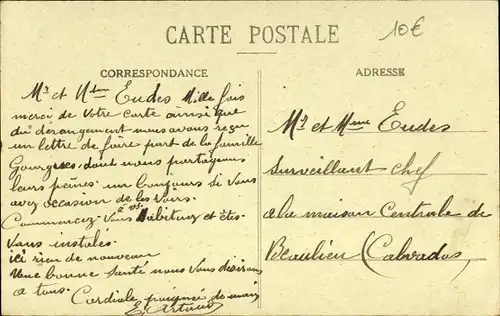 CARTE POSTALE
10€
CORRESPONDANCE
Mr et Mme Eudes Mille fois
merci de Votre Carte ainsi que
du dérangement nous avons reçu
un lettre de faire part de la famille
dont nous partageons
leurs peines un bonjours si Vous
avez occasion de les Voirs.
Commencez-Vous à vs. habituez et êtes.
Vous instalés.
ici rien de nouveau
Une bonne Santé nous Vous désirons
a tous.
Cordiale poignée de main
E. Artaud
ADRESSE
Mr et Mme Eudes
Surveillant chef
a la maison Centrale de
Beaulieu (Calvados)